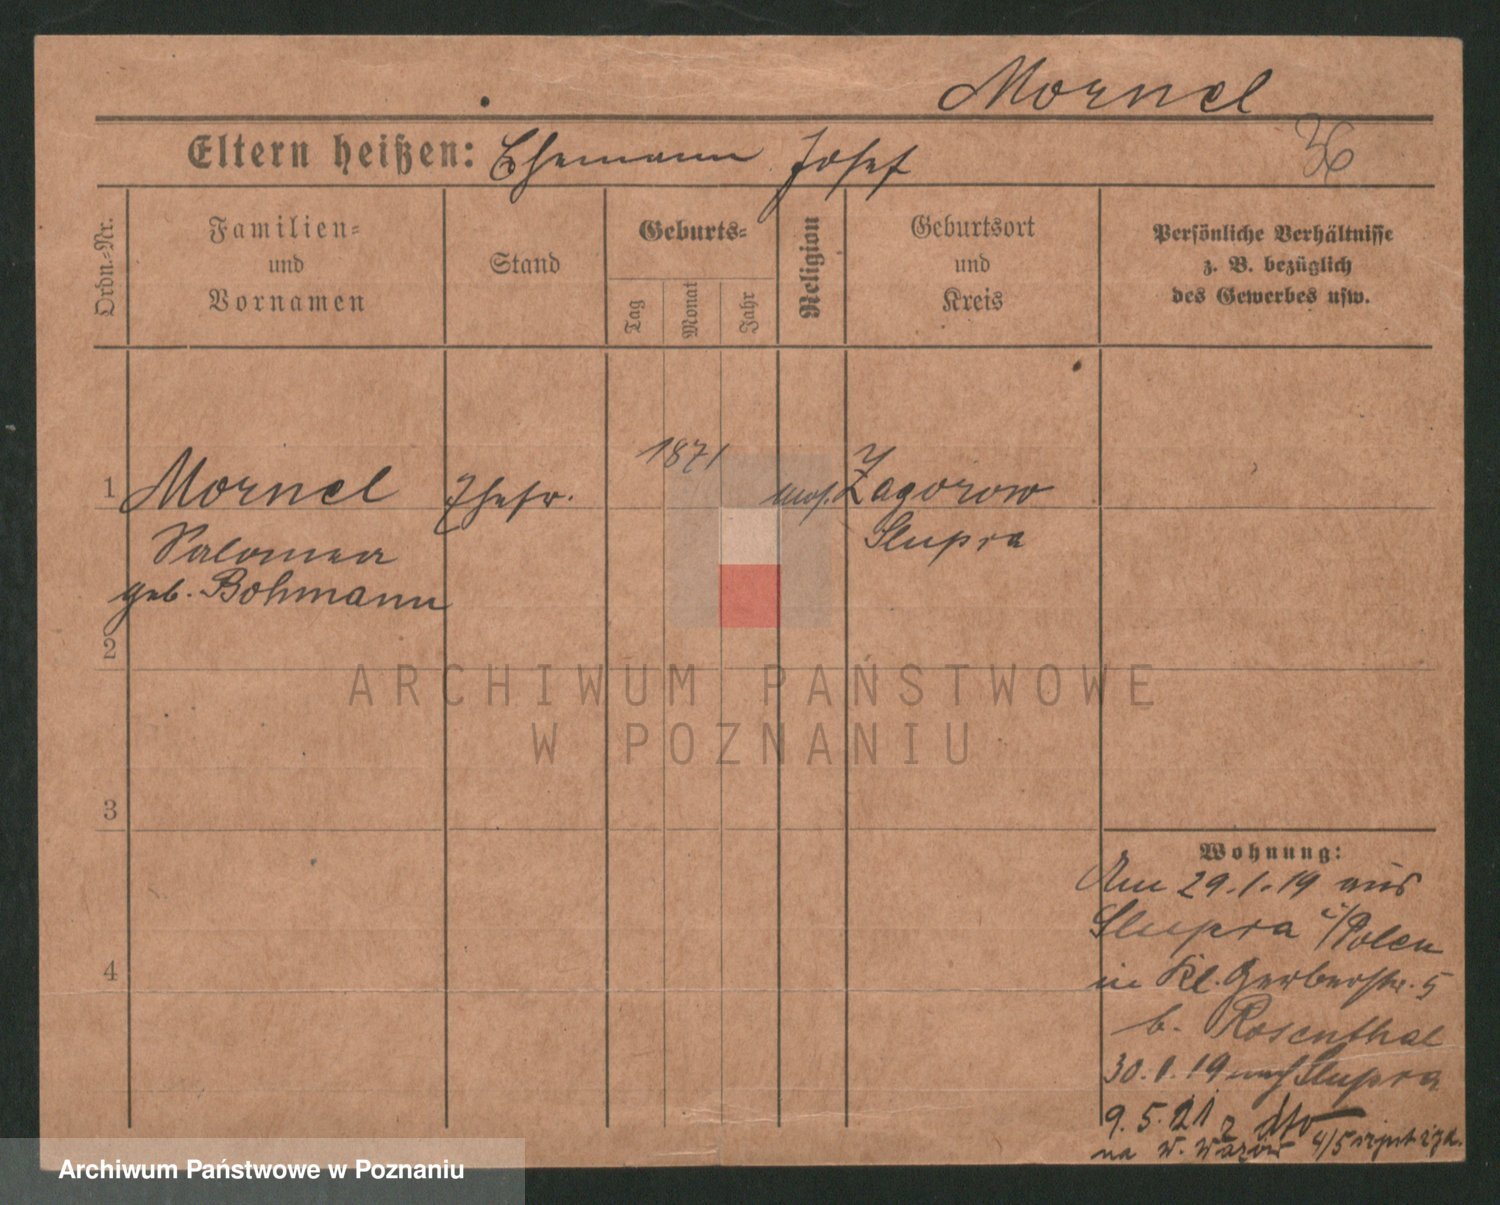 Mornel
Eltern heißen: Ehemann Josef
36
Ordn.-Nr.
Familien-
und
Vornamen
Stand
Geburts-
Tag
Monat
Jahr
Religion
Geburtsort
und
Kreis
Persönliche Verhältnisse
z. B. bezüglich
des Gewerbes usw.
1 Mornel Ehefr. 1871 mos. Zagorow
Salomea Slupca
geb. Bohmann
2
3
4
Wohnung:
Am 29.1.19 aus
Slupca i/Polen
in Kl. Gerberstr. 5
b. Rosenthal
30.1.19 nach Slupca
9.5.21 z dto
na W.
ARCHIWUM PAŃSTWOWE
W POZNANIU
Archiwum Państwowe w Poznaniu